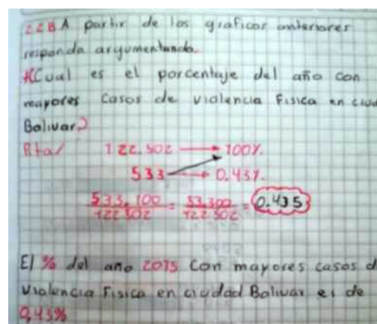 A partir de los graficos anteriores
responda argumentando.
Cual es el porcentaje del año con
mayores casos de violencia Fisica en ciud
Bolivar?
Rta/ 122.502 → 100%.
533 → 0.43%.
533.100 / 122 502 = 53.300 / 122 502 = 0.435
El % del año 2015 con mayores casos d
violencia Fisica en ciudad Bolivar es de
0,43%